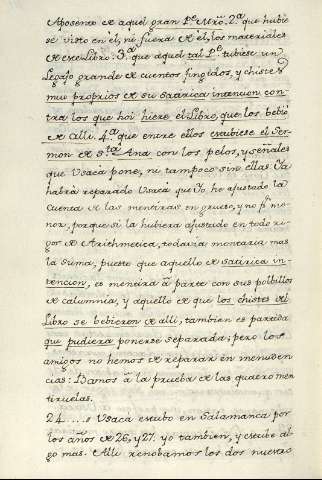 Aposento de aquel gran P.e Mrõ. 2.a que hubie
se visto en èl, ni fuera de èl, los materiales
de ese Libro: 3.a que aquel tal P.e tubiese un
Legajo grande de cuentos fingidos, y chistes
mui proprios de su satirica intencion con
tra los que hoi hiere el Libro, que los bebiò
de alli. 4.a que entre ellos estubiese el Ser-
mon de S.ta Ana con los pelos, y señales
que Usacà pone, ni tampoco sin ellas. Ya
habrà reparado Usacà que Yo he ajustado la
Cuenta de las mentiras en grueso, y no p.r me-
nor, porque si la hubiera ajustado en todo ri-
gor de Arithmetica, todavia montaria mas
la suma, puesto que aquello de satirica in-
tencion, es mentira à parte con sus polbillos
de calumnia, y aquello de que los chistes del
Libro se bebieron de alli, tambien es partida
que pudiera ponerse separada; pero los
amigos no hemos de reparar en menuden
cias: Vamos à la prueba de las quatro men
tiruelas.
24 .... Usacà estubo en Salamanca por
los años de 26, y 27. yo tambien, y estube al-
go mas. Alli renobamos los dos nuestro